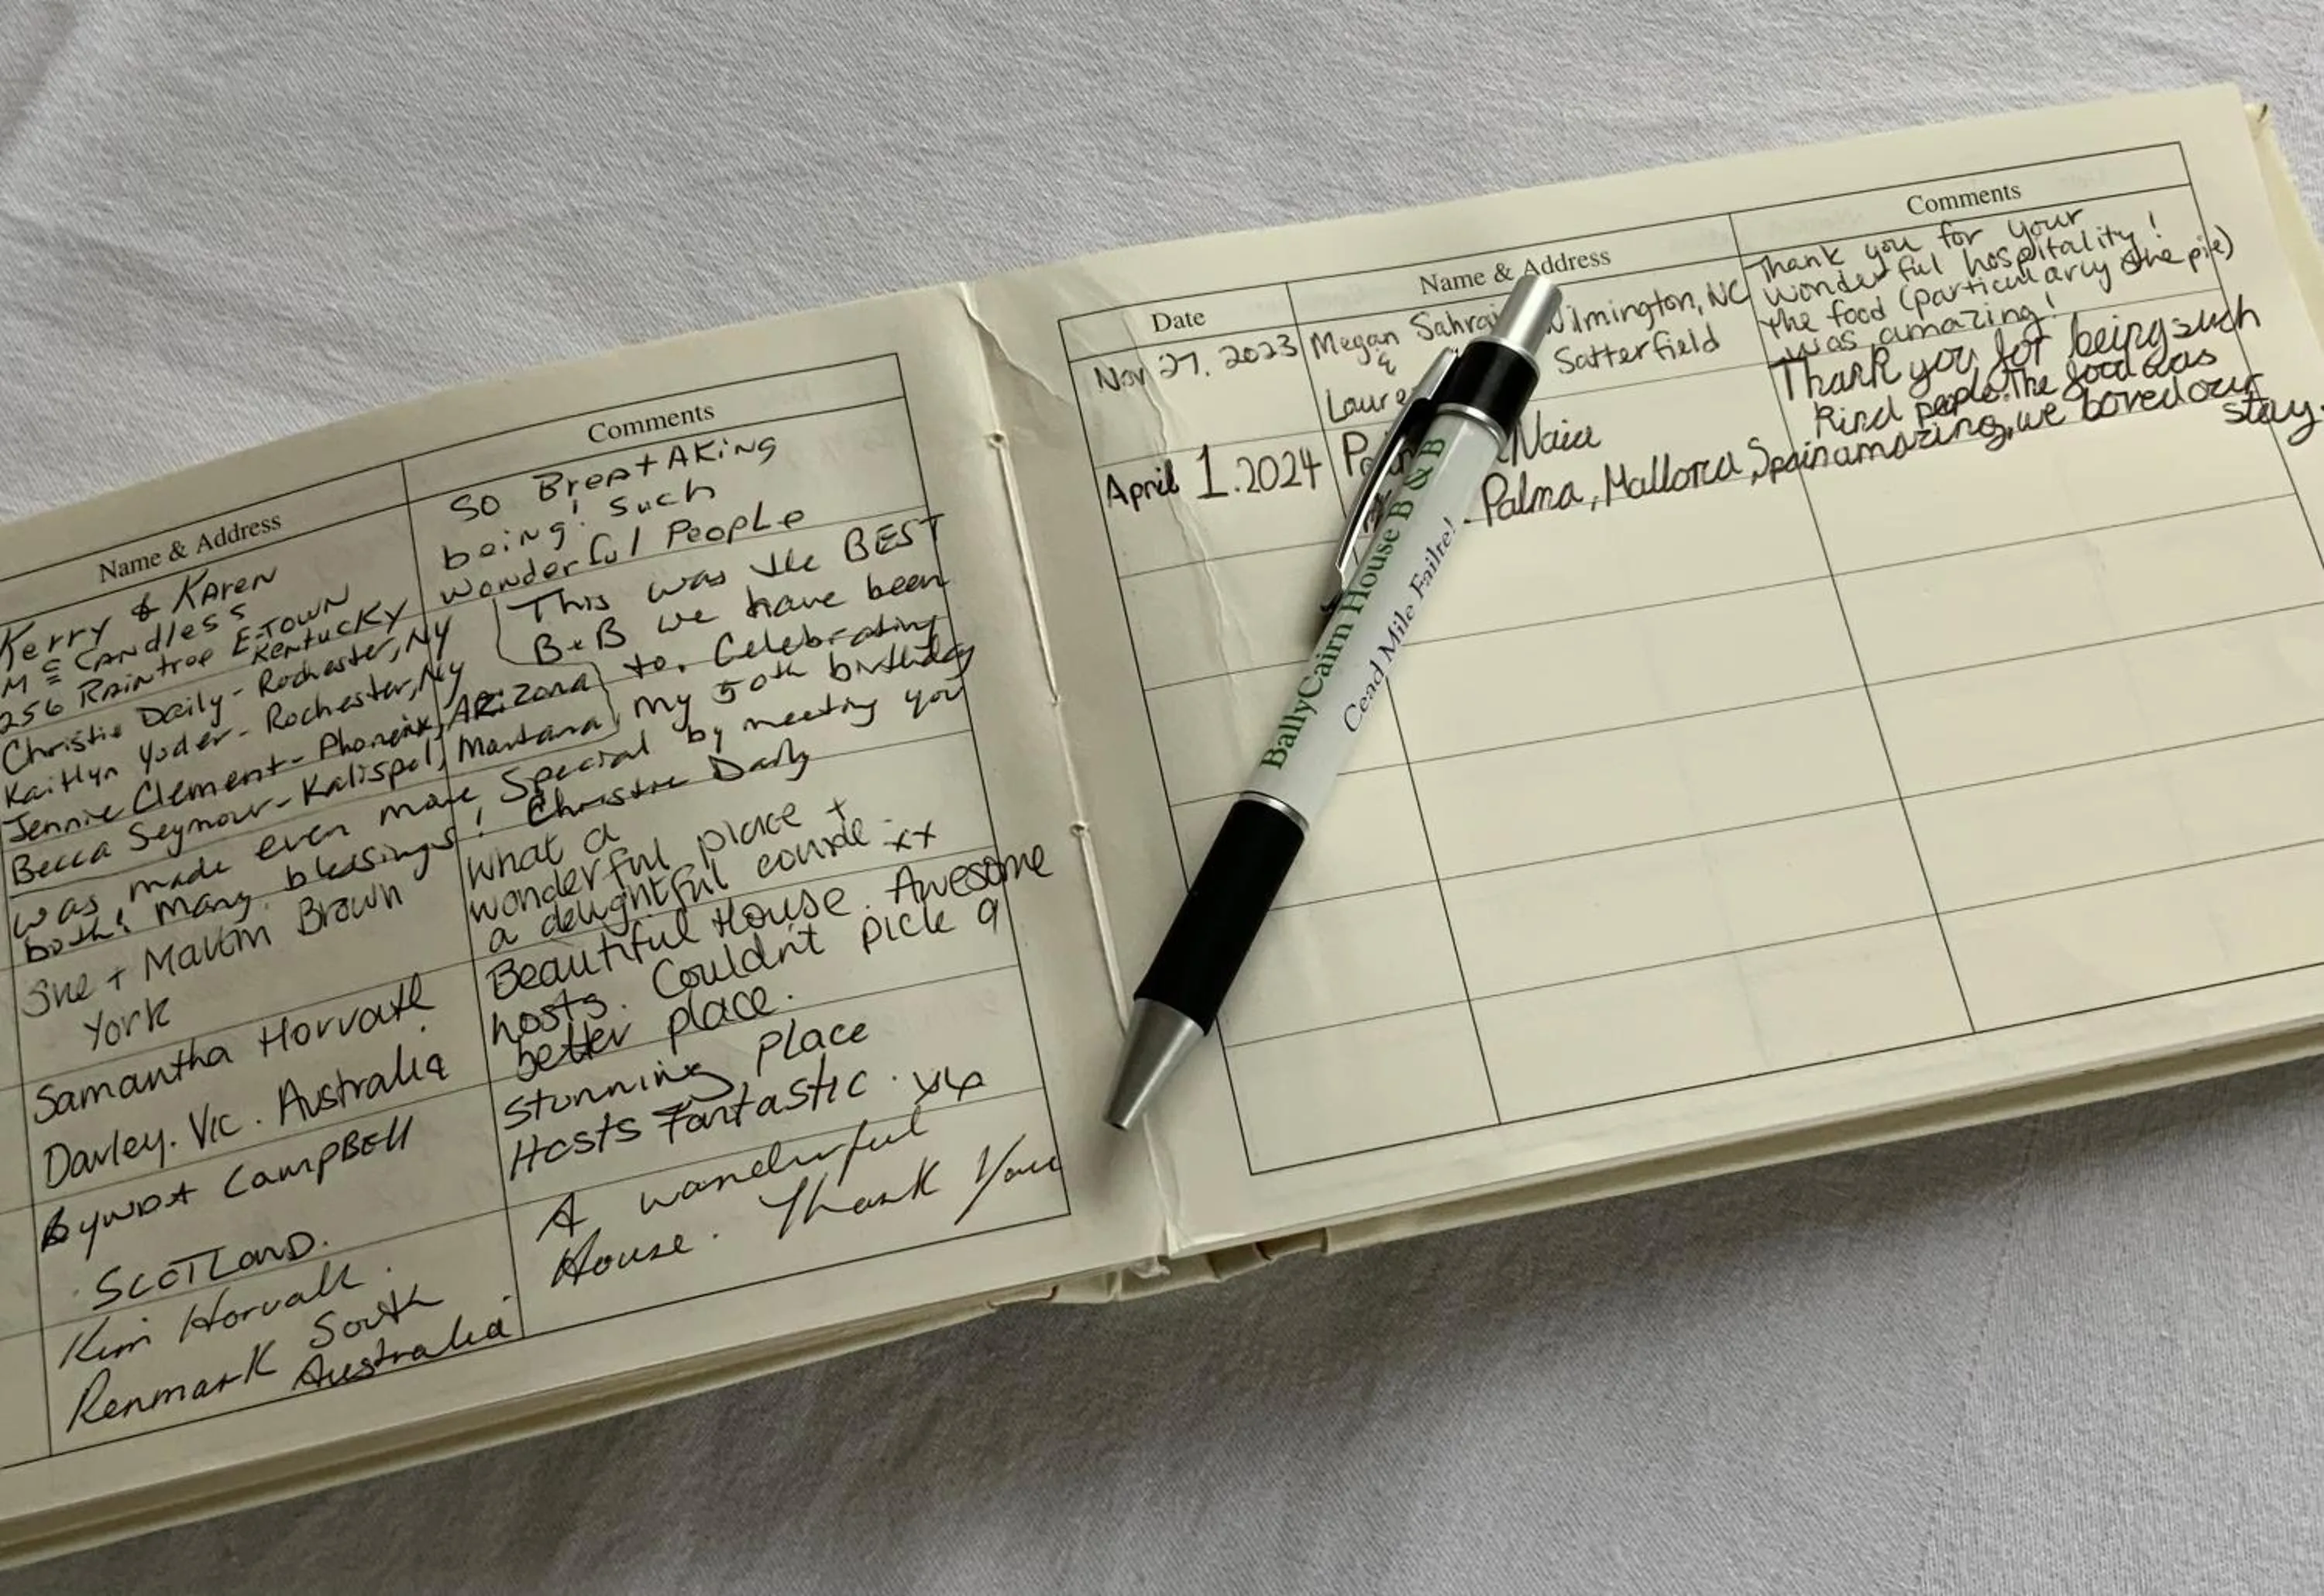 Name & Address
Comments
Kerry & Karen
McCandless
256 Raintree E-TOWN
Kentucky
SO BrEATAKing
being! Such
wonderful People
Christie Daily - Rochester, NY
Kaitlyn Yoder - Rochester, NY
Jennie Clement - Phoenix, ARizona
Becca Seymour - Kalispel, Montana
This was the BEST
B+B we have been
to. Celebrating
my 50th birthday
was made even more Special by meeting you
both! Many blessings! Christie Daily
Sue + Martin Brown
York
What a
wonderful place +
a delightful couple xx
Samantha Horvath
Darley. Vic. Australia
Beautiful House. Awesome
hosts. Couldn't pick a
better place.
CampBEll
SCOTLanD.
Stunning Place
Hosts Fantastic. xx
Kim Horvath.
Renmark South
Australia.
A wonderful
House. Thank You
Date
Name & Address
Comments
Nov 27, 2023
Megan Wilmington, NC
&
Satterfield
Thank you for your
wonderful hospitality!
The food (particularly the pie)
was amazing!
April 1. 2024
Naia
Palma, Mallorca, Spain
Thank you for being such
kind people. The food was
amazing, we loved our
stay.
BallyCairn House B & B
Cead Mile Failte!